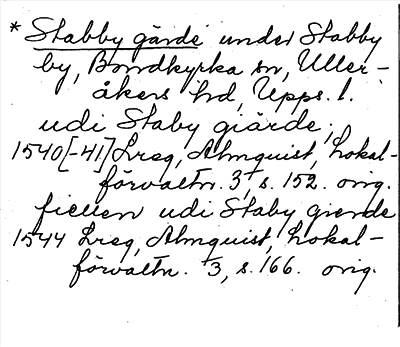 * Stabby gärde under Stabby
by, Bondkyrka sn, Uller-
åkers hd, Upps. l.
udi Staby giärde,
1540[-41] Lrsg, Almquist, Lokal-
förvaltn. 3, s. 152. orig.
fiellen udi Staby gierde
1544 Lrsg, Almquist, Lokal-
förvaltn. 3, s. 166. orig.